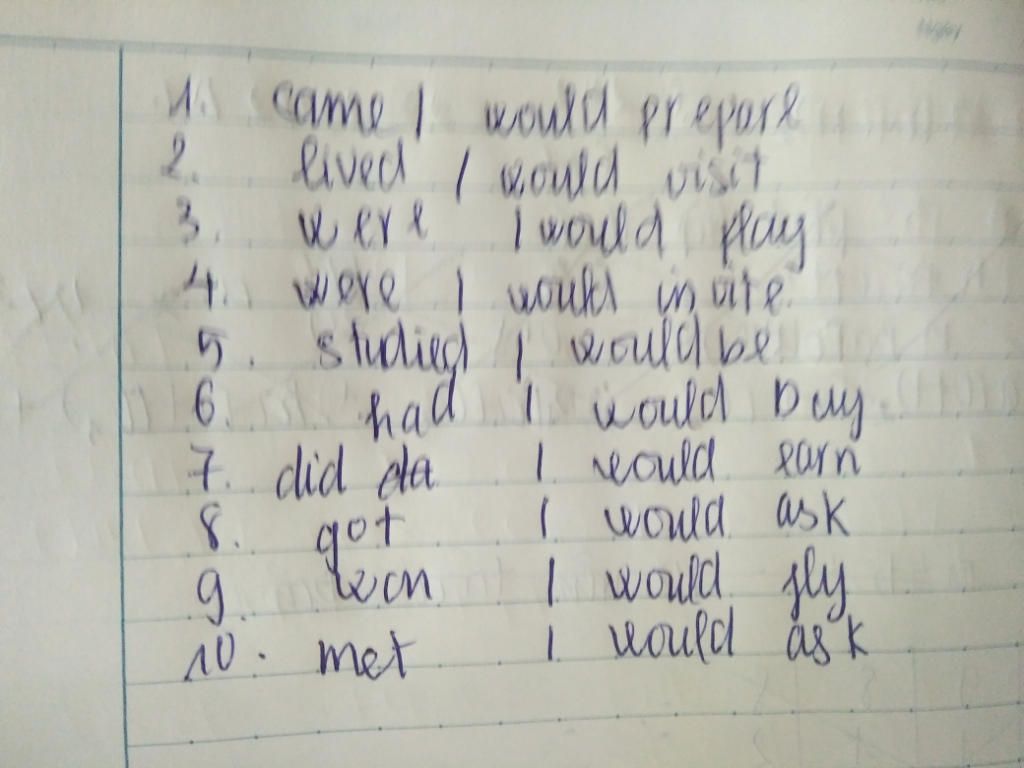 1. came / would prepare
2. lived / would visit
3. were / would play
4. were / would invite
5. studied / would be
6. had / would buy
7. did da / would earn
8. got / would ask
9. won / would fly
10. met / would ask